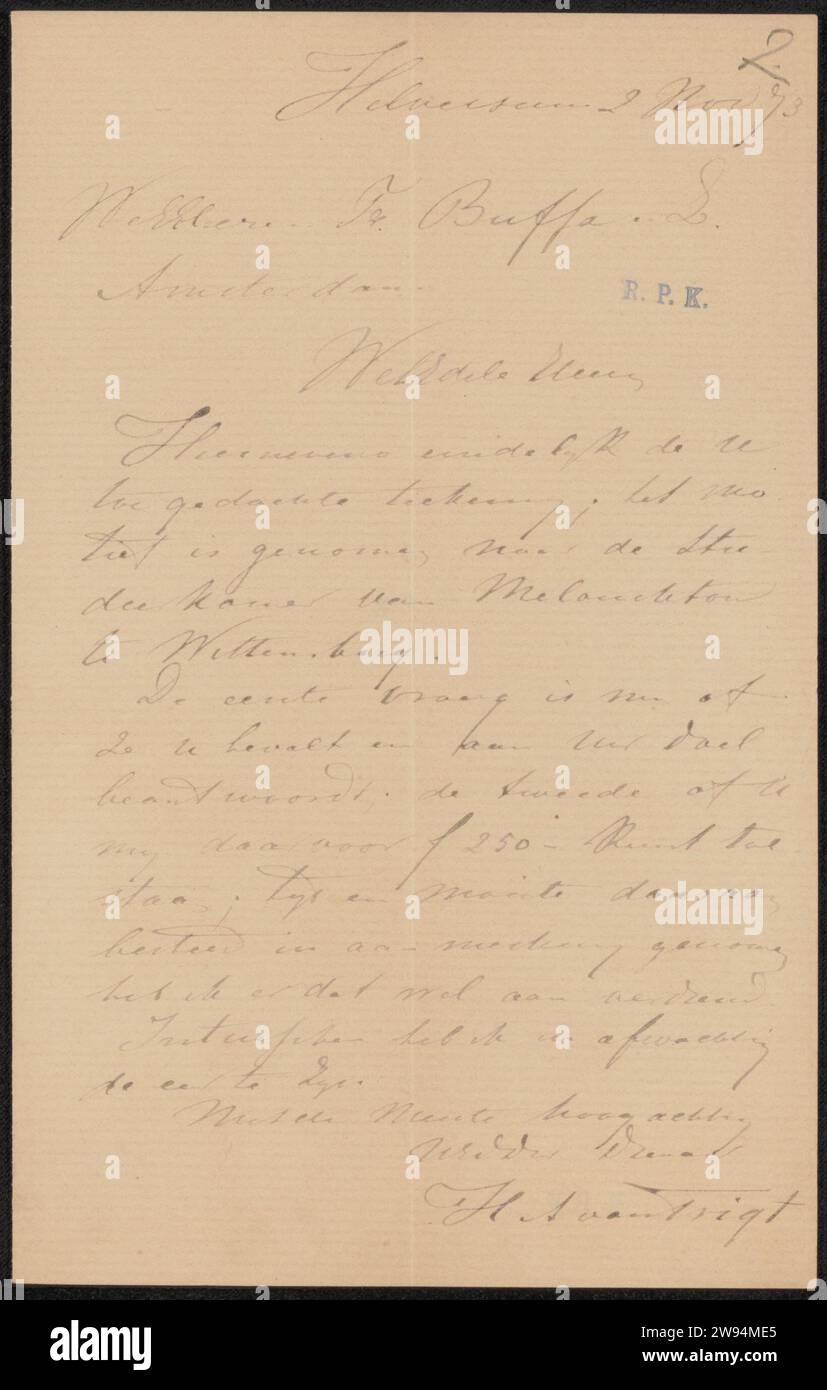 2
Hilversum 2 Nov 73
WelEdheeren Fr. Buffa & Z.
Amsterdam
R. P. K.
WelEdele Heeren
Hiernevens eindelijk de U
toegedachte teekening; het mo
tief is genomen naar de Stu
deerkamer van Melanchton
te Wittenberg.
De eerste vraag is nu of
ze u bevalt en aan Uw doel
beantwoordt; de tweede of U
mij daarvoor f 250 - kunt toe
staan; tijd en moeite daaraan
besteed in aanmerking genomen
heb ik er dat wel aan verdiend.
Intusschen heb ik in afwachting
de eer te zijn
Met de meeste hoogachting
UEdDw Dienaar
H A van Trigt
alamy
Image ID: 2W94ME5
www.alamy.com